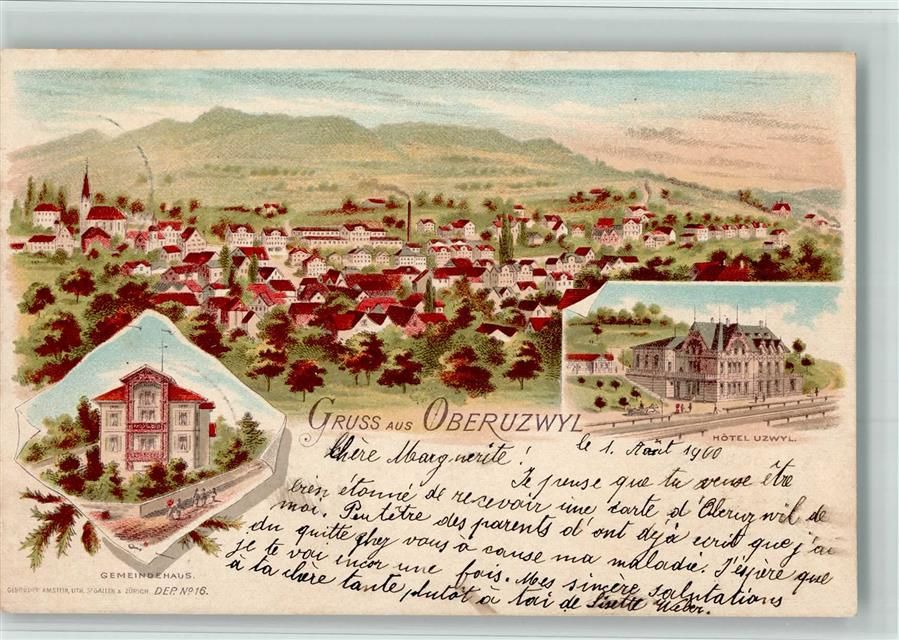 GRUSS AUS OBERUZWYL
HÔTEL UZWYL.
le 1. Août 1900
Chère Marguerite!
Je pense que tu veuse être
bien étonné de recevoir une carte d'Oberuzwil de
moi. Peutêtre des parents d'ont déjà ecrit que j'ai
du quitte chez vous à cause ma maladie. J'espère que
je te voi incor une fois. Mes sincère salutations
à ta chère tante plutôt à toi de Lisette Weber.
GEMEINDEHAUS.
GEBRÜDER AMSTEIN, LITH. ST GALLEN & ZÜRICH. DEP. No 16.